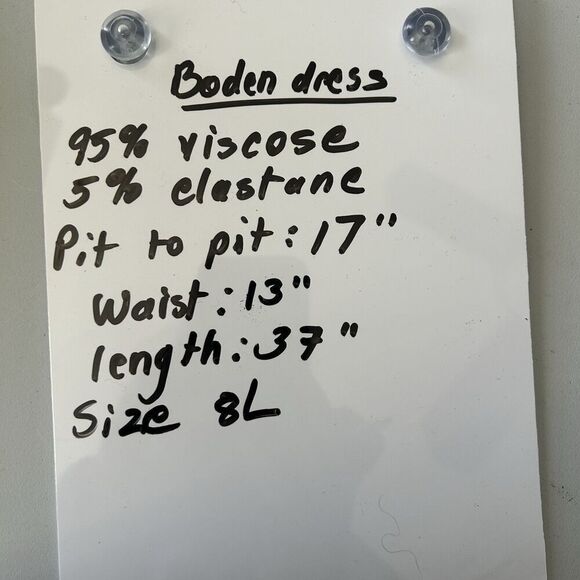 Boden dress
95% viscose
5% elastane
Pit to pit: 17"
Waist: 13"
length: 37"
Size 8L